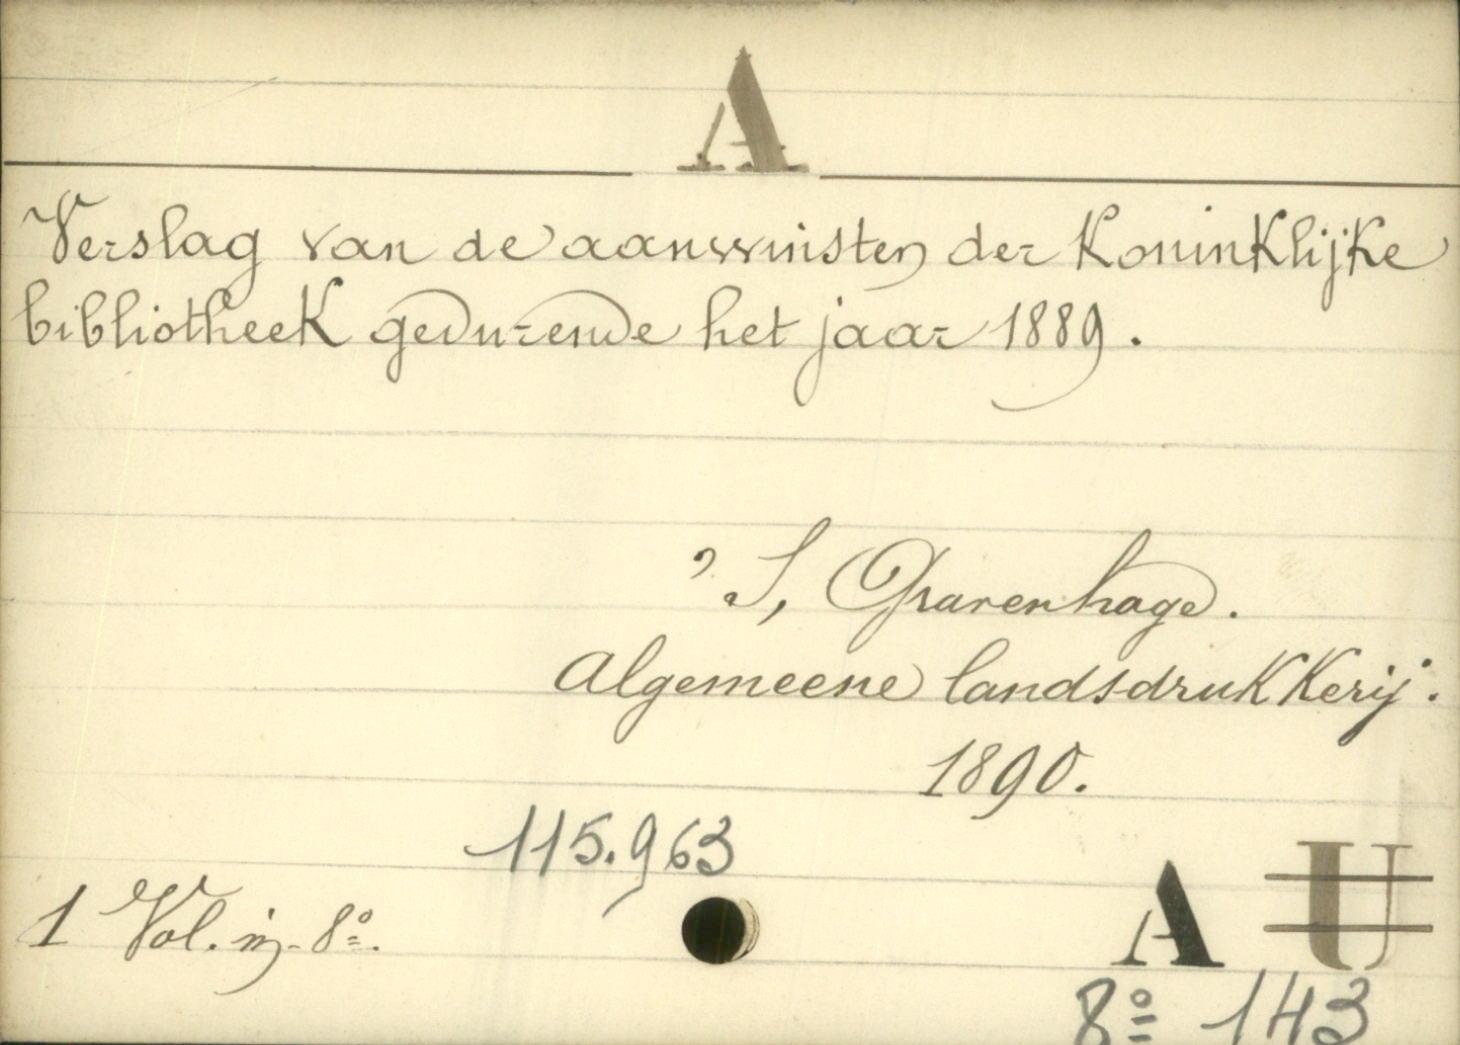 A
Verslag van de aanwinsten der Koninklijke
bibliotheek gedurende het jaar 1889.
's, Gravenhage.
Algemeene landsdrukkerij.
1890.
115.963
1 Vol. in-8º.
A U
8º 143